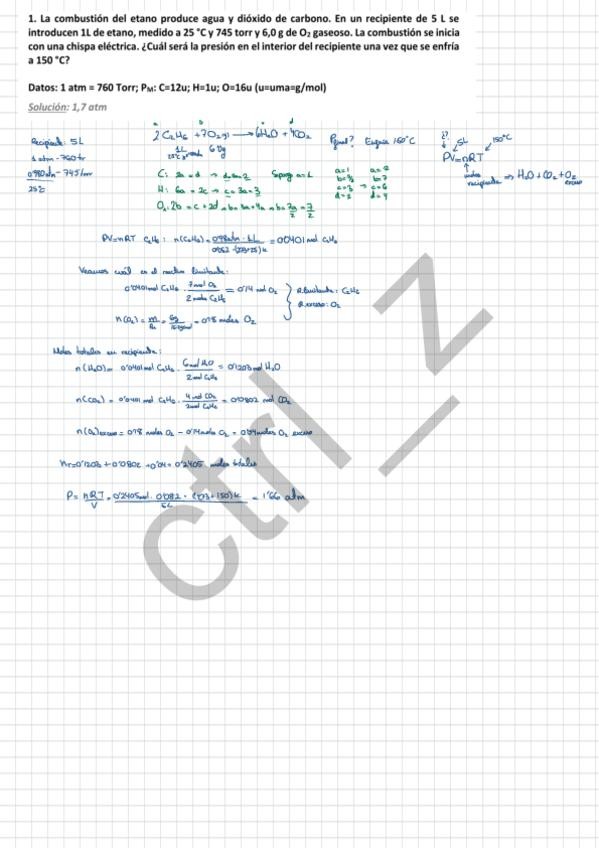 1. La combustión del etano produce agua y dióxido de carbono. En un recipiente de 5 L se
introducen 1L de etano, medido a 25 °C y 745 torr y 6,0 g de O₂ gaseoso. La combustión se inicia
con una chispa eléctrica. ¿Cuál será la presión en el interior del recipiente una vez que se enfría
a 150 °C?
Datos: 1 atm = 760 Torr; Pм: C=12u; H=1u; O=16u (u=uma=g/mol)
Solución: 1,7 atm
a b c d
2C₂H₆ + 7O₂(g) → 6H₂O + 4CO₂
1L 6'0g
25°C
Recipiente: 5L
1 atm - 760 torr
0'980 atm - 745 torr
25°C
Pfinal? 150°C
¿? 5L 150°C
PV=nRT
moles
recipiente ⇒ H₂O + CO₂ + O₂
exceso
C: 2a = d → d = 2
H: 6a = 2c → c = 3a = 3
O: 2b = c + 2d
a=1 a=2
b=7/2 b=7
c=3 → c=6
d=2 d=4
PV=nRT C₂H₆: n(C₂H₆) = 0'98atm · 1L / 0'082 · (273+25)K = 0'0401 mol C₂H₆
Veamos cuál es el reactivo limitante:
0'0401 mol C₂H₆ · 7 mol O₂ / 2 mol C₂H₆ = 0'14 mol O₂
R. limitante: C₂H₆
R. exceso: O₂
n(O₂) = m/Pm = 6g / = 0'18 moles O₂
Moles totales en recipiente:
n(H₂O) = 0'0401 mol C₂H₆ · 6 mol H₂O / 2 mol C₂H₆ = 0'1203 mol H₂O
n(CO₂) = 0'0401 mol C₂H₆ · 4 mol CO₂ / 2 mol C₂H₆ = 0'0802 mol CO₂
n(O₂)exceso = 0'18 moles O₂ - 0'14 moles O₂ = 0'04 moles O₂ exceso
nT = 0'1203 + 0'0802 + 0'04 = 0'2405 moles totales
P = nRT/V = 0'2405mol · 0'082 · (273+150)K / 5L = 1'66 atm
ctrl_z